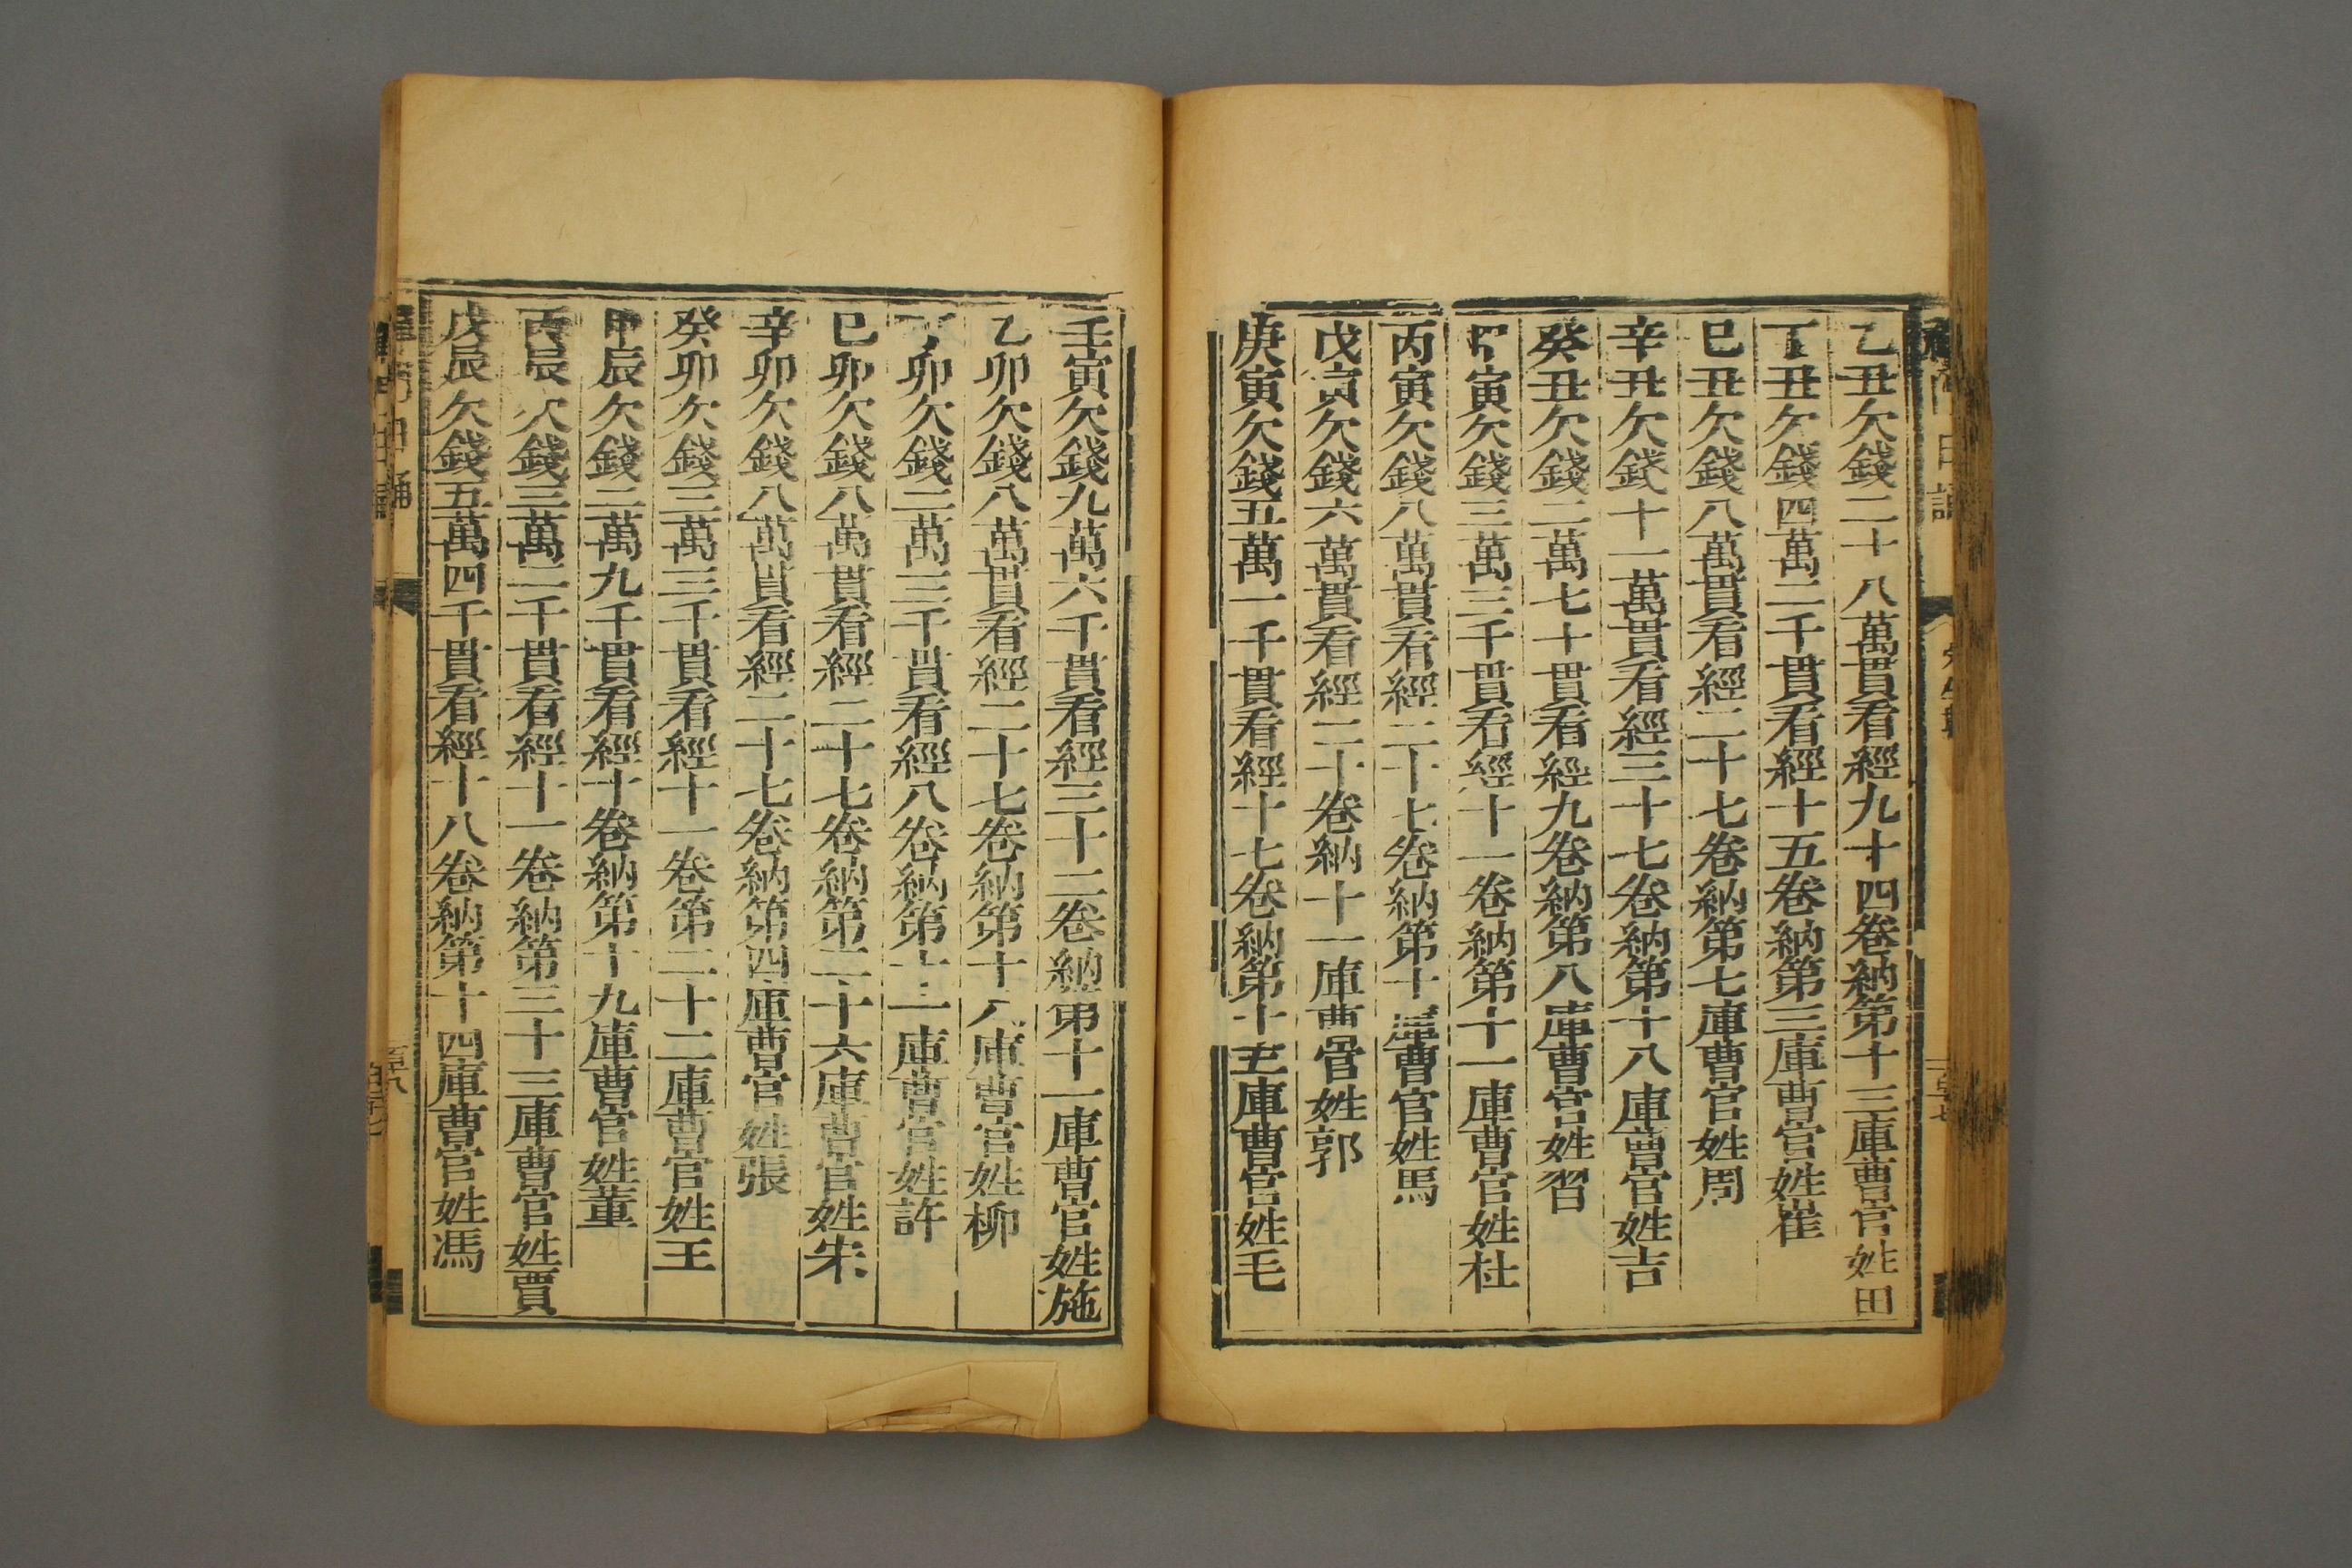 乙丑欠錢二十八萬貫看經九十四卷納第十三庫曹官姓田
丁丑欠錢四萬二千貫看經十五卷納第三庫曹官姓崔
巳丑欠錢八萬貫看經二十七卷納第七庫曹官姓周
辛丑欠錢十一萬貫看經三十七卷納第十八庫曹官姓吉
癸丑欠錢二萬七十貫看經九卷納第八庫曹官姓習
甲寅欠錢三萬三千貫看經十一卷納第十一庫曹官姓杜
丙寅欠錢八萬貫看經二十七卷納第十庫曹官姓馬
戊寅欠錢六萬貫看經二十卷納十一庫曹官姓郭
庚寅欠錢五萬一千貫看經十七卷納第十五庫曹官姓毛
壬寅欠錢九萬六千貫看經三十二卷納第十一庫曹官姓施
乙卯欠錢八萬貫看經二十七卷納第十八庫曹官姓柳
丁卯欠錢二萬三千貫看經八卷納第十一庫曹官姓許
巳卯欠錢八萬貫看經二十七卷納第二十六庫曹官姓宋
辛卯欠錢八萬貫看經二十七卷納第四庫曹官姓張
癸卯欠錢三萬三千貫看經十一卷第二十二庫曹官姓王
甲辰欠錢二萬九千貫看經十卷納第十九庫曹官姓董
丙辰欠錢三萬二千貫看經十一卷納第三十三庫曹官姓賈
戊辰欠錢五萬四千貫看經十八卷納第十四庫曹官姓馮